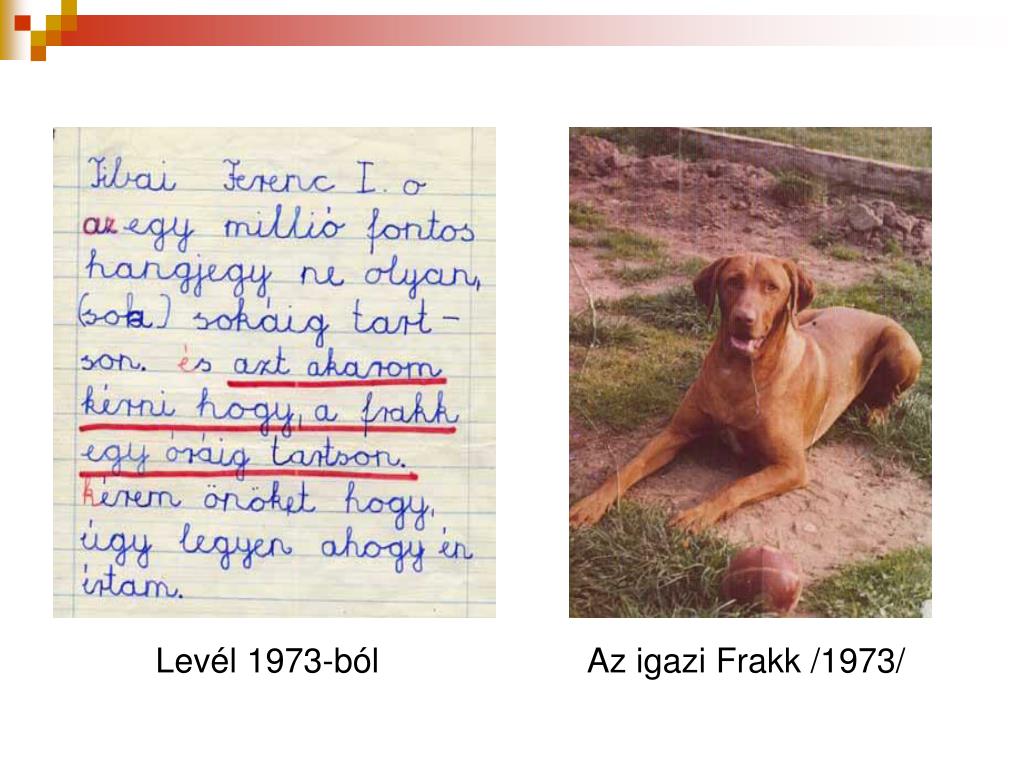 Tibai Ferenc I. o
az egy millió fontos
hangjegy ne olyan,
(soka) sokáig tart-
son. és azt akarom
kérni hogy, a frakk
egy óráig tartson.
kérem önöket hogy,
úgy legyen ahogy én
írtam.
Levél 1973-ból
Az igazi Frakk /1973/